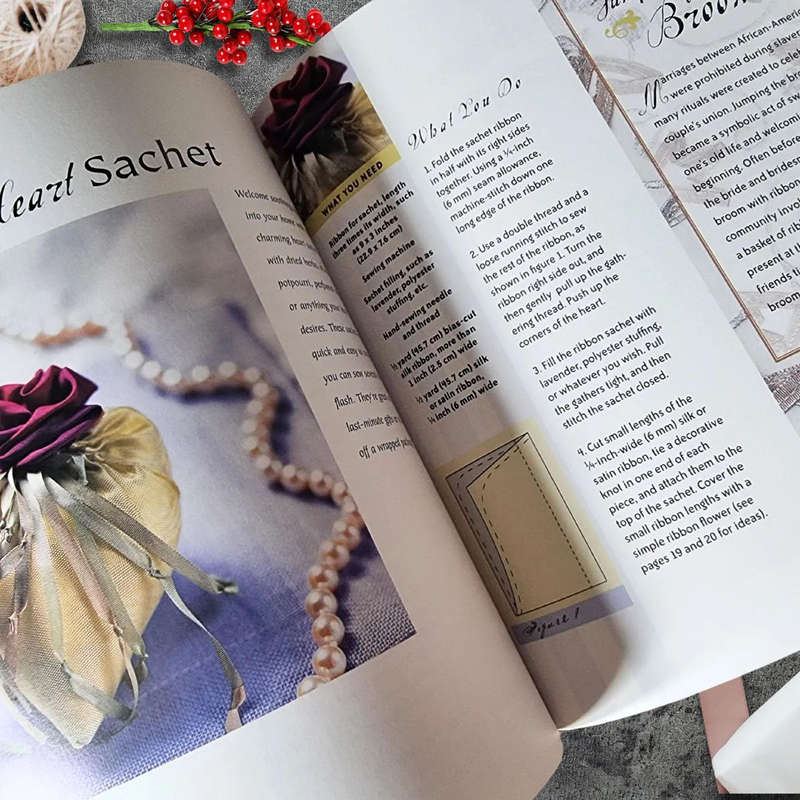 Heart Sachet
Welcome
into your home
charming heart
with dried
potpourri,
or anything
desires. These
quick and easy to
you can sew
flash. They're
last-minute gifts
off a wrapped
WHAT YOU NEED
Ribbon for sachet, length
three times its width, such
as 9 x 3 inches
(22.9 x 7.6 cm)
Sewing machine
Sachet filling, such as
lavender, polyester
stuffing, etc.
Hand-sewing needle
and thread
½ yard (45.7 cm) bias-cut
silk ribbon, more than
1 inch (2.5 cm) wide
½ yard (45.7 cm) silk
or satin ribbon,
¼ inch (6 mm) wide
Figure 1
What You Do
1. Fold the sachet ribbon
in half with its right sides
together. Using a ¼-inch
(6 mm) seam allowance,
machine-stitch down one
long edge of the ribbon.
2. Use a double thread and a
loose running stitch to sew
the rest of the ribbon, as
shown in figure 1. Turn the
ribbon right side out, and
then gently pull up the gath-
ering thread. Push up the
corners of the heart.
3. Fill the ribbon sachet with
lavender, polyester stuffing,
or whatever you wish. Pull
the gathers tight, and then
stitch the sachet closed.
4. Cut small lengths of the
¼-inch-wide (6 mm) silk or
satin ribbon, tie a decorative
knot in one end of each
piece, and attach them to the
top of the sachet. Cover the
small ribbon lengths with a
simple ribbon flower (see
pages 19 and 20 for ideas).
Broom
Marriages between African-Americ
were prohibited during slaver
many rituals were created to cele
couple's union. Jumping the bro
became a symbolic act of sw
one's old life and welcomi
beginning. Often before
the bride and bridesm
broom with ribbon
community invo
a basket of rib
present at the
friends ti
broom